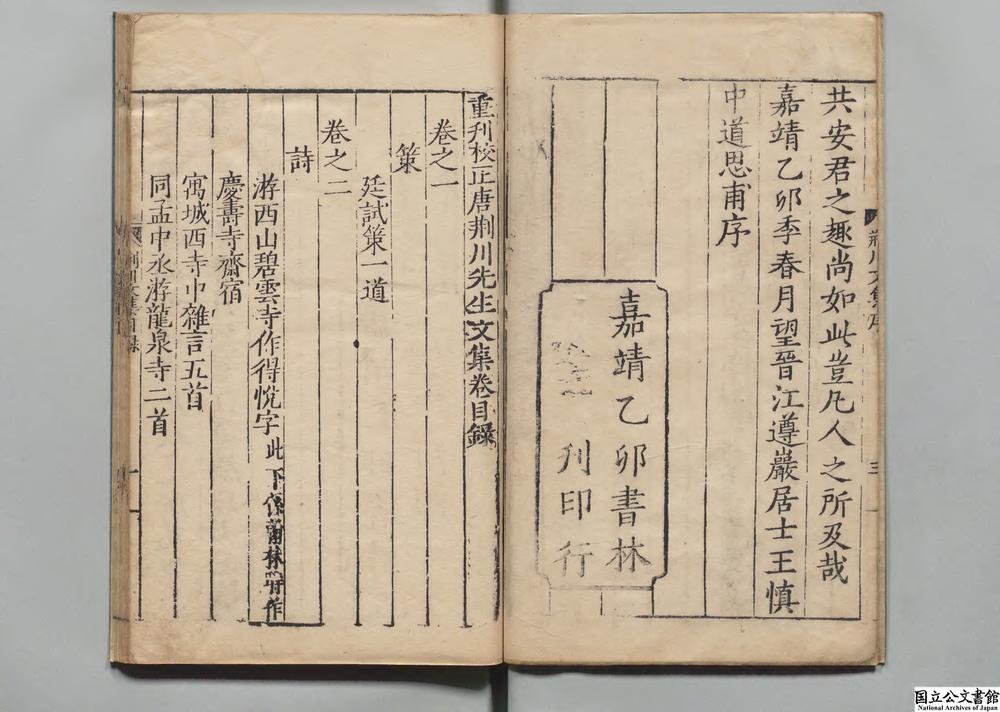 共安君之趣尚如此豈凡人之所及哉
嘉靖乙卯季春月望晉江遵巖居士王慎
中道思甫序
嘉靖乙卯書林
刋印行
荊川文集序
三
重刋校正唐荊川先生文集卷目錄
卷之一
策
廷試策一道
卷之二
詩
游西山碧雲寺作得悅字此下係翰林時作
慶壽寺齋宿
寓城西寺中雜言五首
同孟中丞游龍泉寺二首
荊川文集目錄
一
国立公文書館
National Archives of Japan